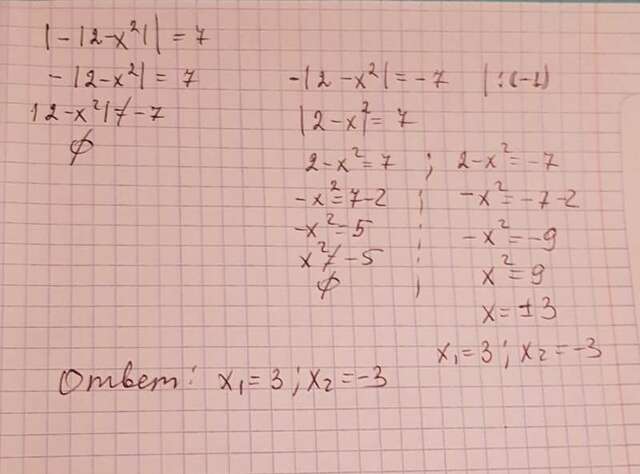 |-|2-x²|| = 7
-|2-x²| = 7
|2-x²| ≠ -7
∅
-|2-x²| = -7 |:(-1)
|2-x²| = 7
2-x² = 7 ; 2-x² = -7
-x² = 7-2 ; -x² = -7-2
-x² = 5 ; -x² = -9
x² ≠ -5 ; x² = 9
∅ ; x = ±3
x₁ = 3 ; x₂ = -3
Ответ: x₁ = 3 ; x₂ = -3